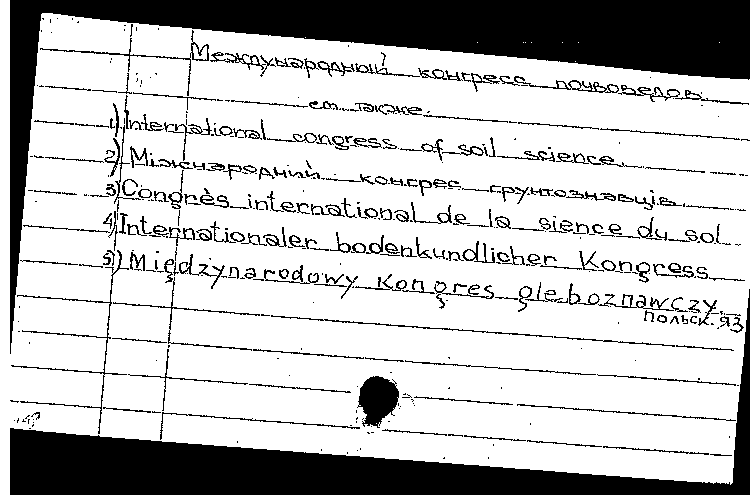 Международный конгресс почвоведов.
см. также:
1) International congress of soil science.
2) Міжнародний конгрес грунтознавців.
3) Congrès international de la sience du sol
4) Internationaler bodenkundlicher Kongress
5) Międzynarodowy Kongres gleboznawczy.
польск. яз